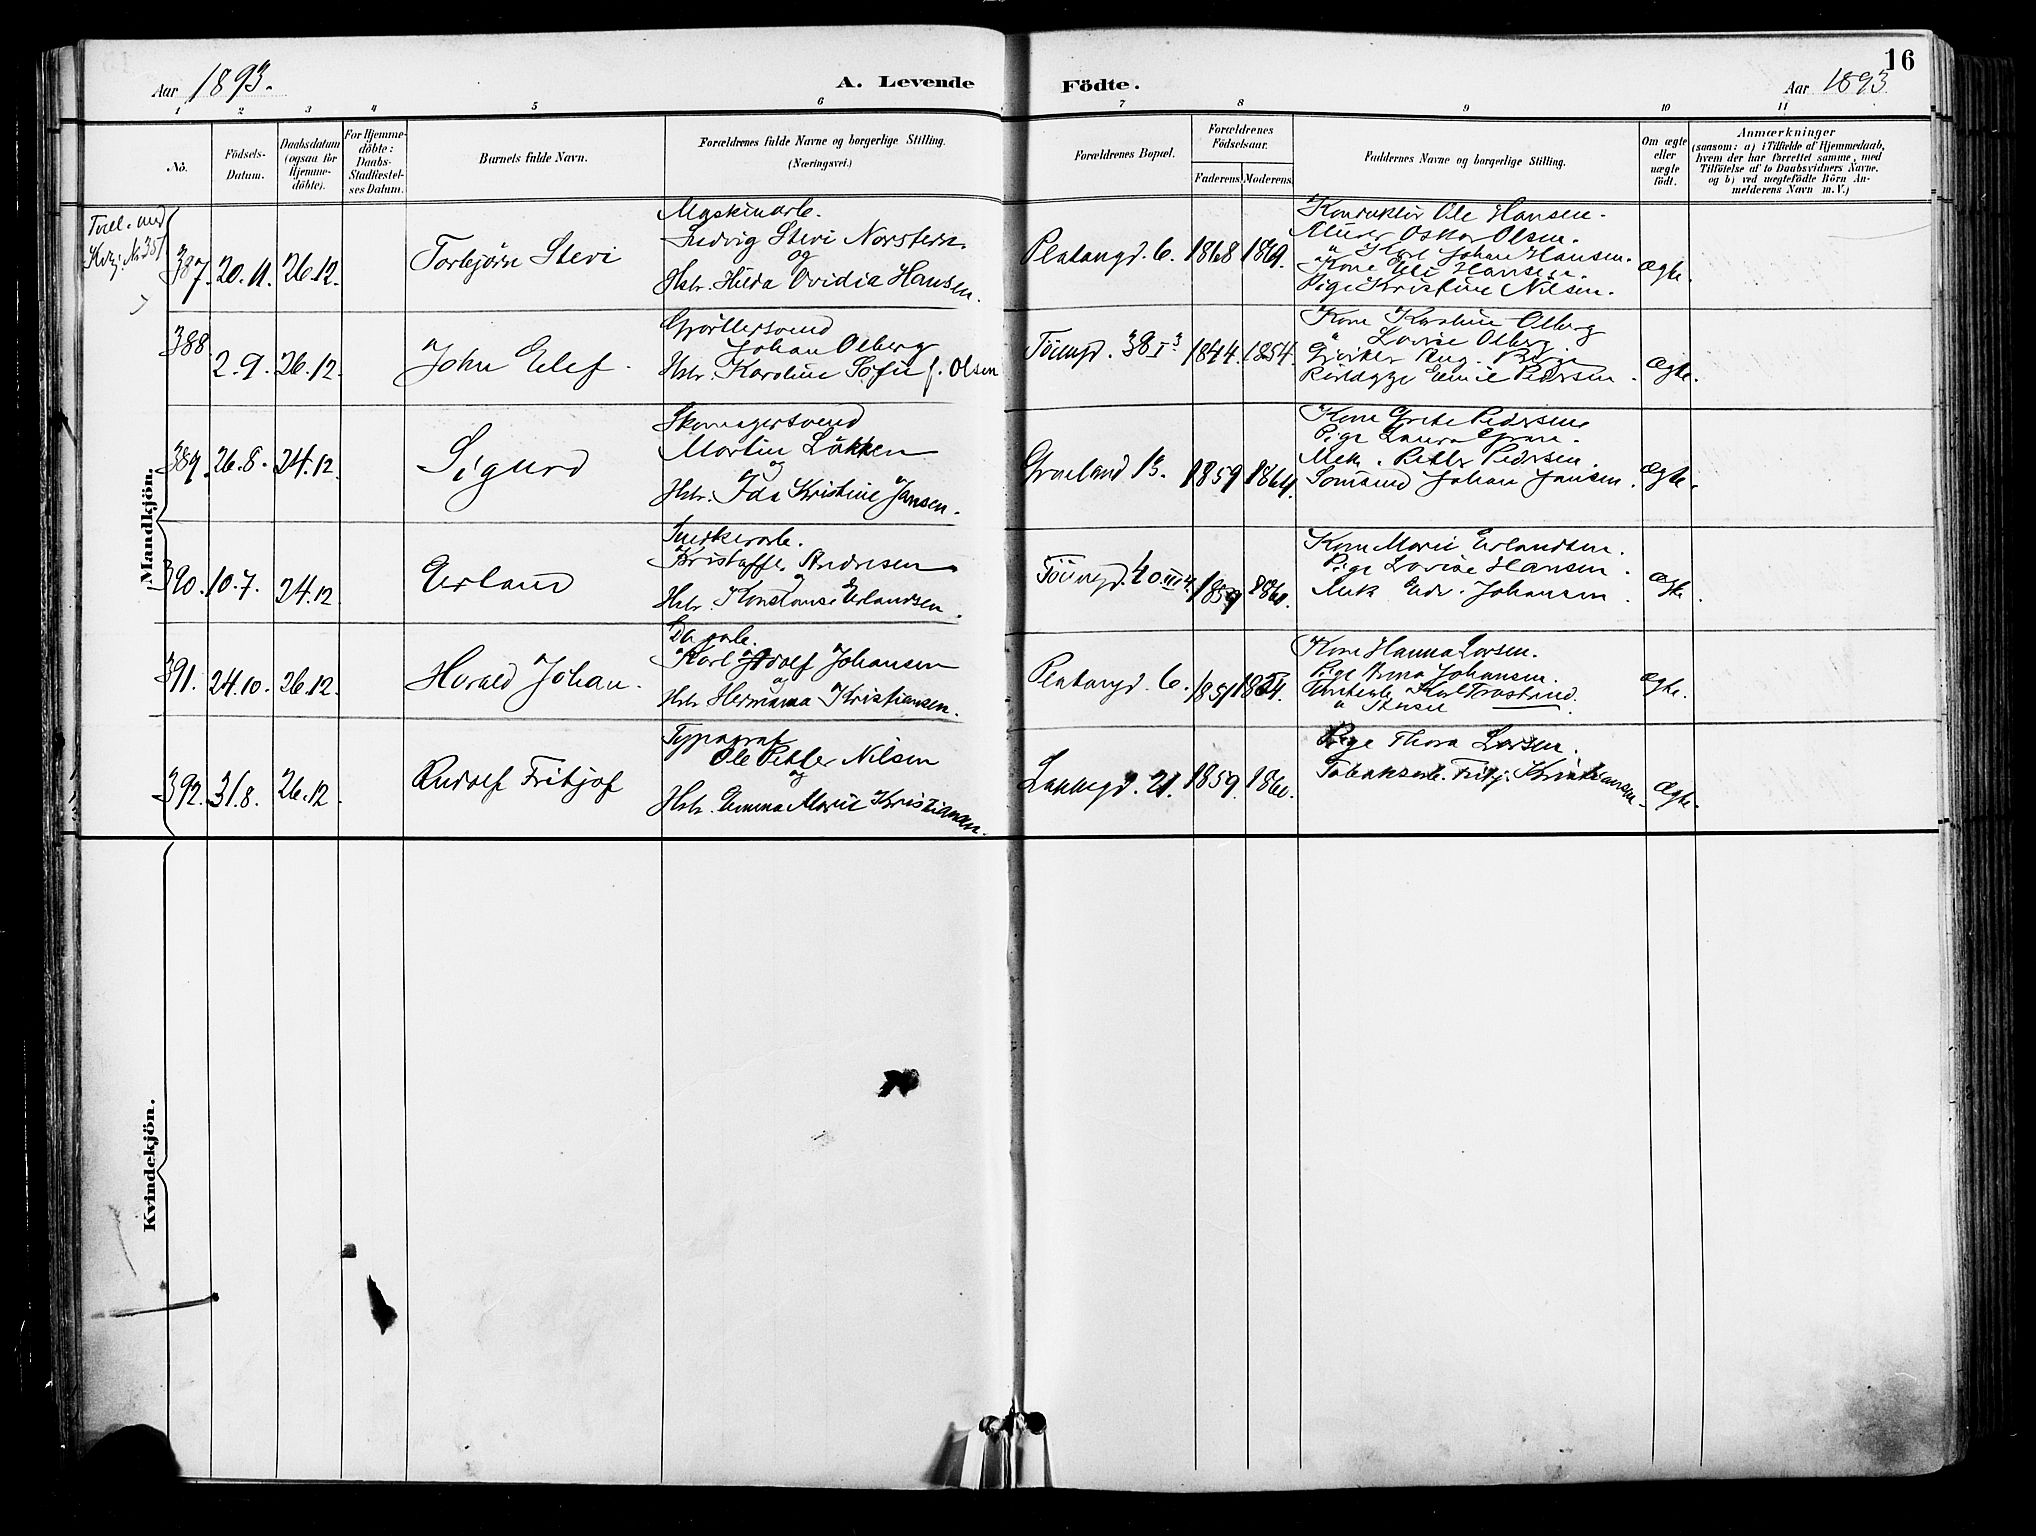 16
Aar 1893.
A. Levende
Födte.
Aar 1893
1 2 3 4 5 6 7 8 9 10 11
Nö.
Födsels-
Datum.
Daabsdatum
(ogsaa for
Hjemme-
döbte).
For Hjemme-
döbte:
Daabs-
Stadfæstel-
ses Datum.
Barnets fulde Navn.
Forældrenes fulde Navne og borgerlige Stilling.
(Næringsvei.)
Forældrenes Bopæl.
Forældrenes
Födselsaar.
Faderens.
Moderens.
Faddernes Navne og borgerlige Stilling.
Om ægte
eller
uægte
födt.
Anmærkninger
(saasom: a) i Tilfælde af Hjemmedaab,
hvem der har forrettet samme, med
Tilföielse af to Daabsvidners Navne.
og b) ved uægtefödte Börn An-
melderens Navn m. V.)
Mandkjön.
Tvil. med
Kvkj. No 351
387. 20.11. 26.12. Torbjørn Stevi
Maskinarb.
Ludvig Stevi Norstern
og
Hstr. Hilda Ovidia Hansen.
Platangd. 6. 1868 1869.
Konduktör Ole Hansen.
Murer Oskar Olsen.
" Karl Johan Hansen.
Kone Eli Hansen.
Pige Kristine Nilsen.
Ægte.
388. 2.9. 26.12. John Elef.
Gjørtlersvend
Johan Olberg
Hstr. Karoline Sofie f. Olsen
Töiengd. 38 I 3 1844. 1854.
Kone Karoline Olberg
" Lovise Olberg
Aug. Berge
Emil Pedersen.
Ægte.
389. 26.8. 24.12. Sigurd
Skomagersvend
Martin Løkken
og
Hstr. Ida Kristine Jansen.
Grønland 13. 1859 1864.
Kone Grete Pedersen
Pige Laura Gran.
Mek. Petter Pedersen.
Sömand Johan Jansen.
Ægte.
390. 10.7. 24.12. Erland
Snedkerarb.
Kristoffer Andresen
og
Hstr. Konstanse Erlandsen.
Töiengd. 40 III 4. 1859 1860.
Kone Marie Erlandsen.
Pige Lovise Hansen.
Mek Edv. Johansen.
Ægte.
391. 24.10. 26.12. Harald Johan.
Dagarb.
Karl Adolf Johansen
og
Hstr Hermana Kristiansen.
Platangd. 6. 1851 1854.
Kone Hanna Larsen.
Pige Anna Johansen.
Karl Trostrud.
Ægte.
392. 31.8. 26.12. Rudolf Fritjof
Typograf
Ole Petter Nilsen
og
Hstr. Emma Marie Kristiansen.
Lakkegd. 21. 1859. 1860.
Pige Thora Larsen.
Tobaksarb. Fritj. Kristiansen.
Ægte.
Kvindekjön.